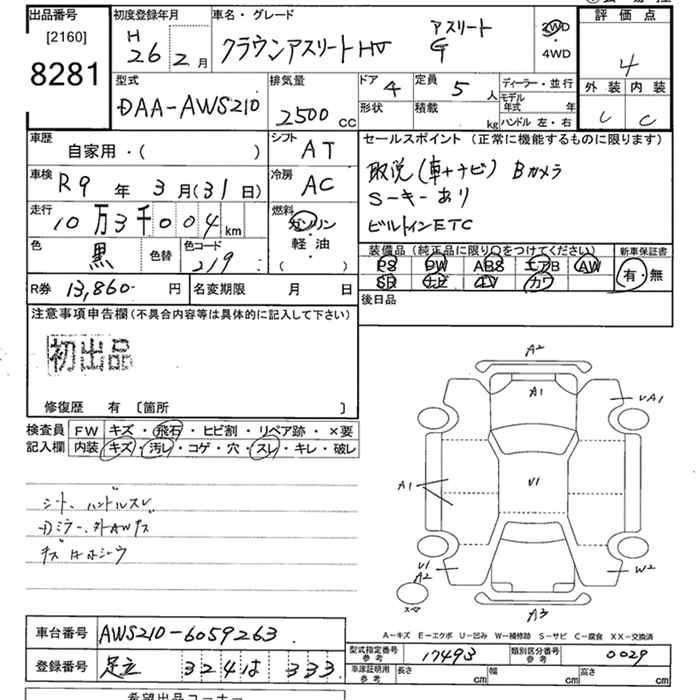 出品番号
[2160]
8281
初度登録年月
H 26 2月
車名・グレード
クラウンアスリートHV アスリートG
2WD
・
4WD
評価点
4
外装 内装
C C
型式
DAA-AWS210
排気量
2500 cc
ドア 4
形状
定員 5 人
積載 kg
ディーラー・並行
モデル年式 年
ハンドル 左・右
車歴
自家用・( )
シフト
AT
車検
R9年 3月(31日)
冷房
AC
走行
10万3千004km
燃料
ガソリン
・
軽・油
( )
色
黒
色替
色コード
219
R券 13,860- 円
名変期限 月 日
セールスポイント (正常に機能するものに限ります)
取説(車+ナビ) Bカメラ
S-キーあり
ビルトインETC
装備品(純正品に限り○をつけてください)
PS PW ABS エアB AW
SR ナビ TV カワ
新車保証書
有・無
後日品
注意事項申告欄(不具合内容等は具体的に記入して下さい)
初出品
修復歴 有 〔箇所 〕
検査員記入欄
FW キズ・飛石・ヒビ割・リペア跡・×要
内装 キズ・汚レ・コゲ・穴・スレ・キレ・破レ
シート、ハンドルスレ
A2
A1
UA1
U1
A1
U1
A2
W2
スペア
A3
A-キズ E-エクボ U-凹み W-補修跡 S-サビ C-腐食 XX-交換済
車台番号 AWS210-6059263
登録番号 足立 324 は 333
型式指定番号 参考 17493
類別区分番号 参考 0029
車庫証明用 参考 長さ cm 幅 cm 高さ cm
希望出品コーナー